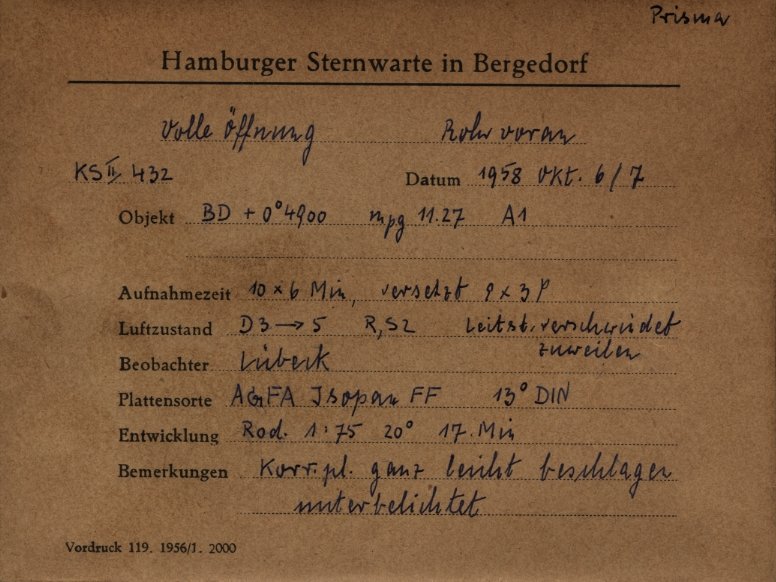 Prisma
Hamburger Sternwarte in Bergedorf
Volle Öffnung Rohr voran
KS II/ 432 Datum 1958 Okt. 6/7
Objekt BD + 0°4900 mpg 11.27 A1
Aufnahmezeit 10 x 6 Min, versetzt 9 x 3
Luftzustand D3 → 5 R, S2 Leitst. verschwindet
zuweilen
Beobachter Lübeck
Plattensorte AGFA Isopan FF 13° DIN
Entwicklung Rod. 1:75 20° 17 Min
Bemerkungen Korr. pl. ganz leicht beschlagen
unterbelichtet
Vordruck 119. 1956/1. 2000